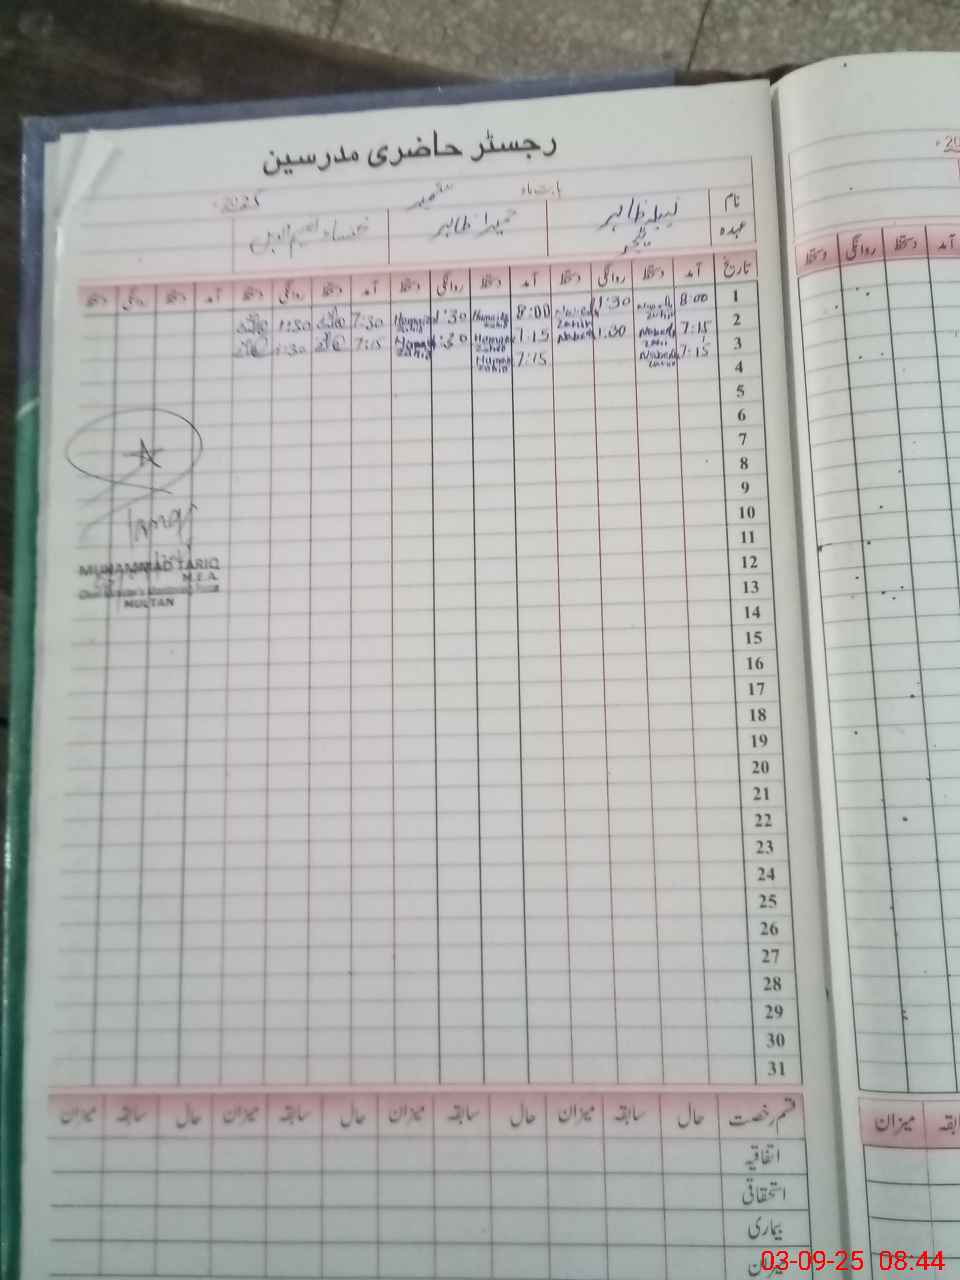 رجسٹر حاضری مدرسین
بابت ماہ ستمبر 2025ء
نام نبیلہ زاہد حمیرا زاہد
عہدہ ٹیچر
تاریخ آمد دستخط روانگی دستخط آمد دستخط روانگی دستخط آمد دستخط روانگی دستخط آمد دستخط روانگی دستخط
1 8:00 Nabeela Zahid 1:30 Nabeela Zahid 8:00 Humaira Zahid 1:30 Humaira Zahid 7:30 1:30
2 7:15 Nabeela Zahid 1:30 Nabeela 7:15 Humaira Zahid 1:30 Humaira Zahid 7:15 1:30
3 7:15 Nabeela Zahid 7:15 Humaira Zahid
4
5
6
7
8
9
10
11
12
13
14
15
16
17
18
19
20
21
22
23
24
25
26
27
28
29
30
31
MUHAMMAD TARIQ
M.E.A.
MULTAN
قسم رخصت حال سابقہ میزان حال سابقہ میزان حال سابقہ میزان حال سابقہ میزان
اتفاقیہ
استحقاقی
بیماری
میزان
20
آمد دستخط روانگی دستخط
میزان
03-09-25 08:44